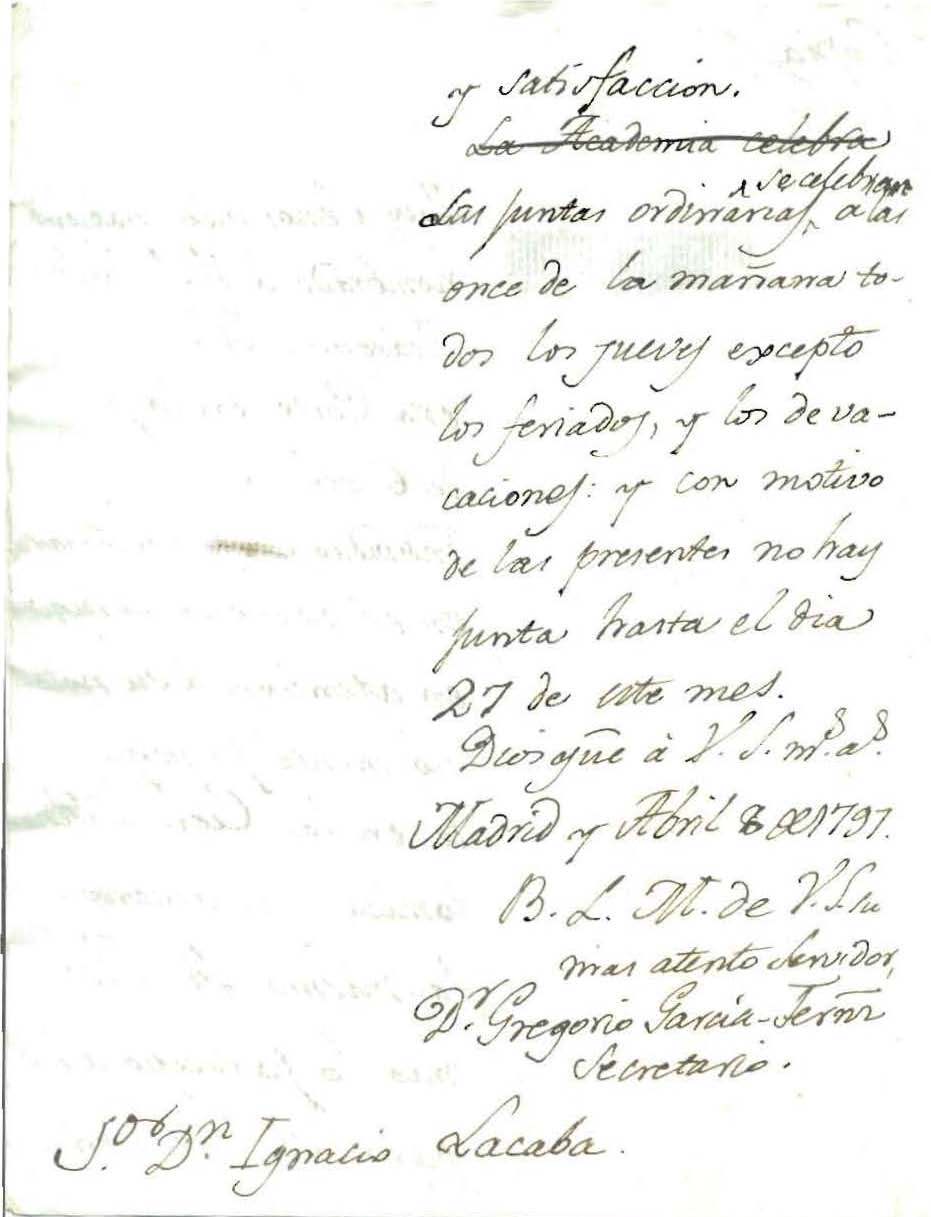 y satisfaccion.
La Academia celebra
se celebran
Las juntas ordinarias, a las
once de la mañana to-
dos los jueves excepto
los feriados, y los de va-
caciones: y con motivo
de las presentes no hay
junta hasta el dia
27 de este mes.
Dios gūe à V. S. m.s a.s
Madrid y Abril 8 de 1797.
B. L. M. de V. S. su
mas atento servidor,
D.r Gregorio Garcia-Fernz
Secretario.
S.or D.n Ignacio Lacaba.